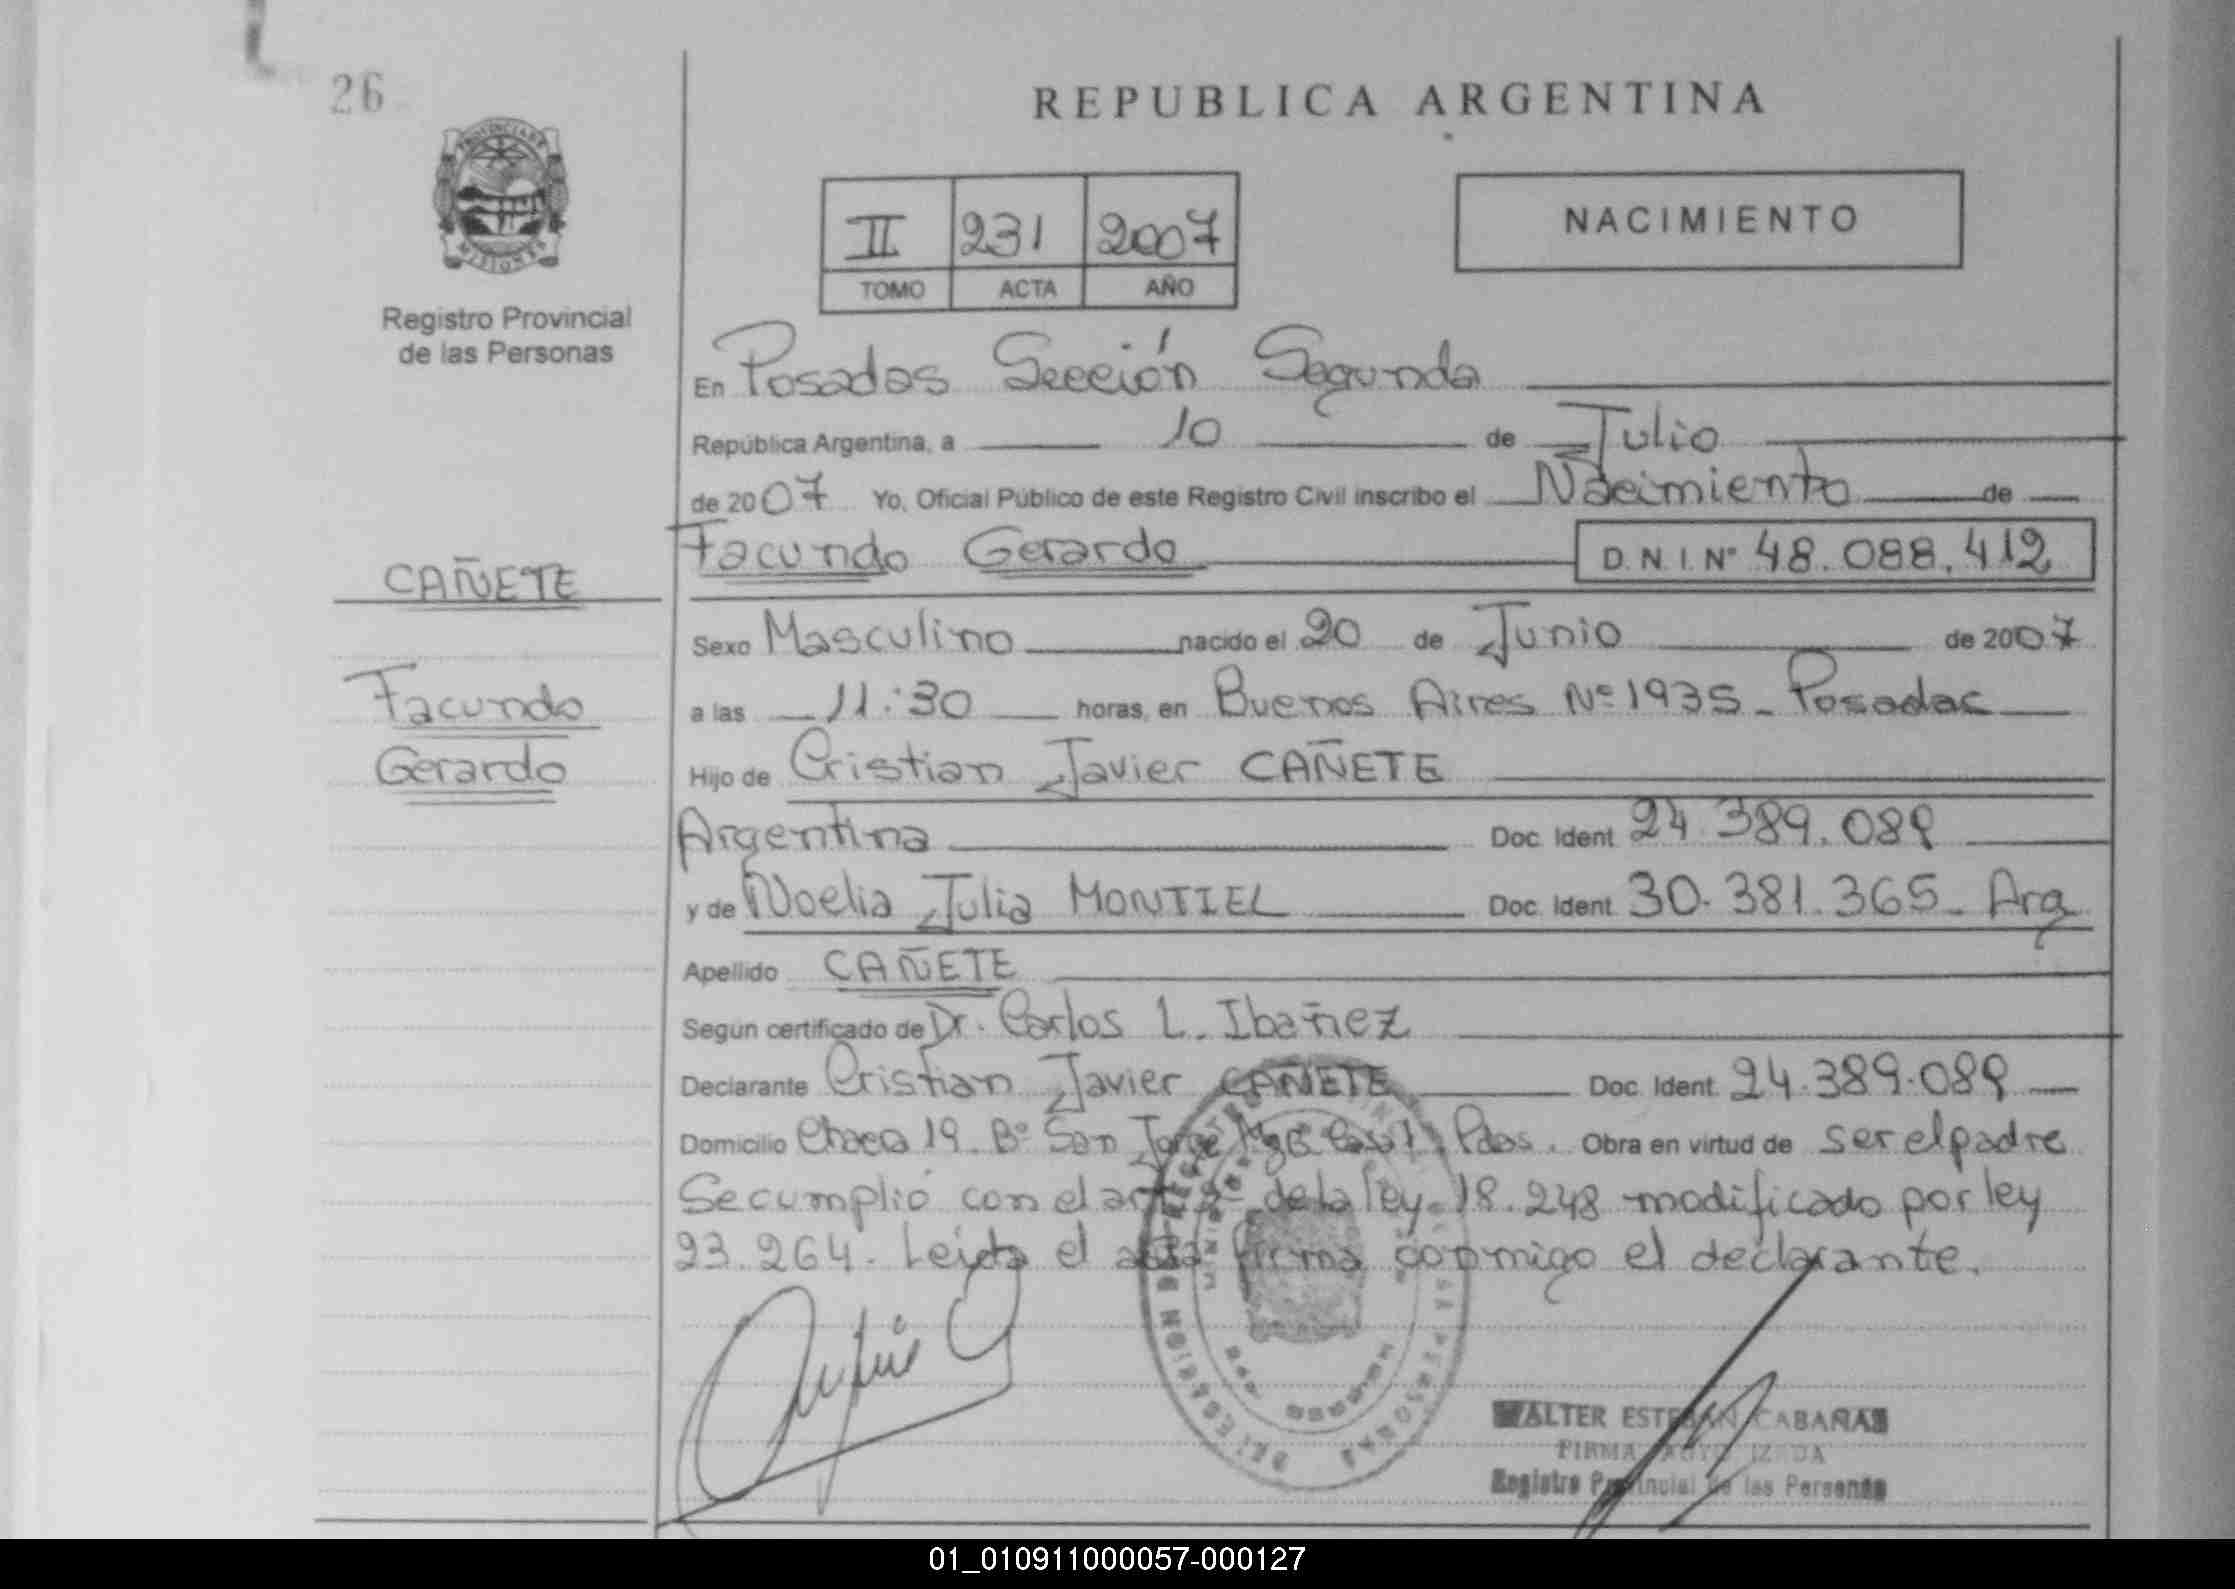 26
REPUBLICA ARGENTINA
PROVINCIA DE
MISIONES
II 231 2007
TOMO ACTA AÑO
NACIMIENTO
Registro Provincial
de las Personas
En Posadas Sección Segunda
República Argentina, a 10 de Julio
de 2007 Yo, Oficial Público de este Registro Civil inscribo el Nacimiento de
Facundo Gerardo D.N.I. Nº 48.088.412
CAÑETE
Facundo
Gerardo
Sexo Masculino nacido el 20 de Junio de 2007
a las 11:30 horas, en Buenos Aires Nº 1935 - Posadas
Hijo de Cristian Javier CAÑETE
Argentina Doc. Ident. 24.389.089
y de Noelia Julia MONTIEL Doc. Ident. 30.381.365 - Arg
Apellido CAÑETE
Según certificado de Dr. Carlos L. Ibañez
Declarante Cristian Javier CAÑETE Doc. Ident. 24.389.089
Domicilio Chacra 19. Bº San Jorge Pdas. Obra en virtud de ser el padre
Se cumplió con el art de la ley 18.248 modificado por ley
23.264. Leída el acta firma conmigo el declarante.
WALTER ESTEBAN CABAÑAS
FIRMA AUTORIZADA
Registro Provincial de las Personas
01_010911000057-000127